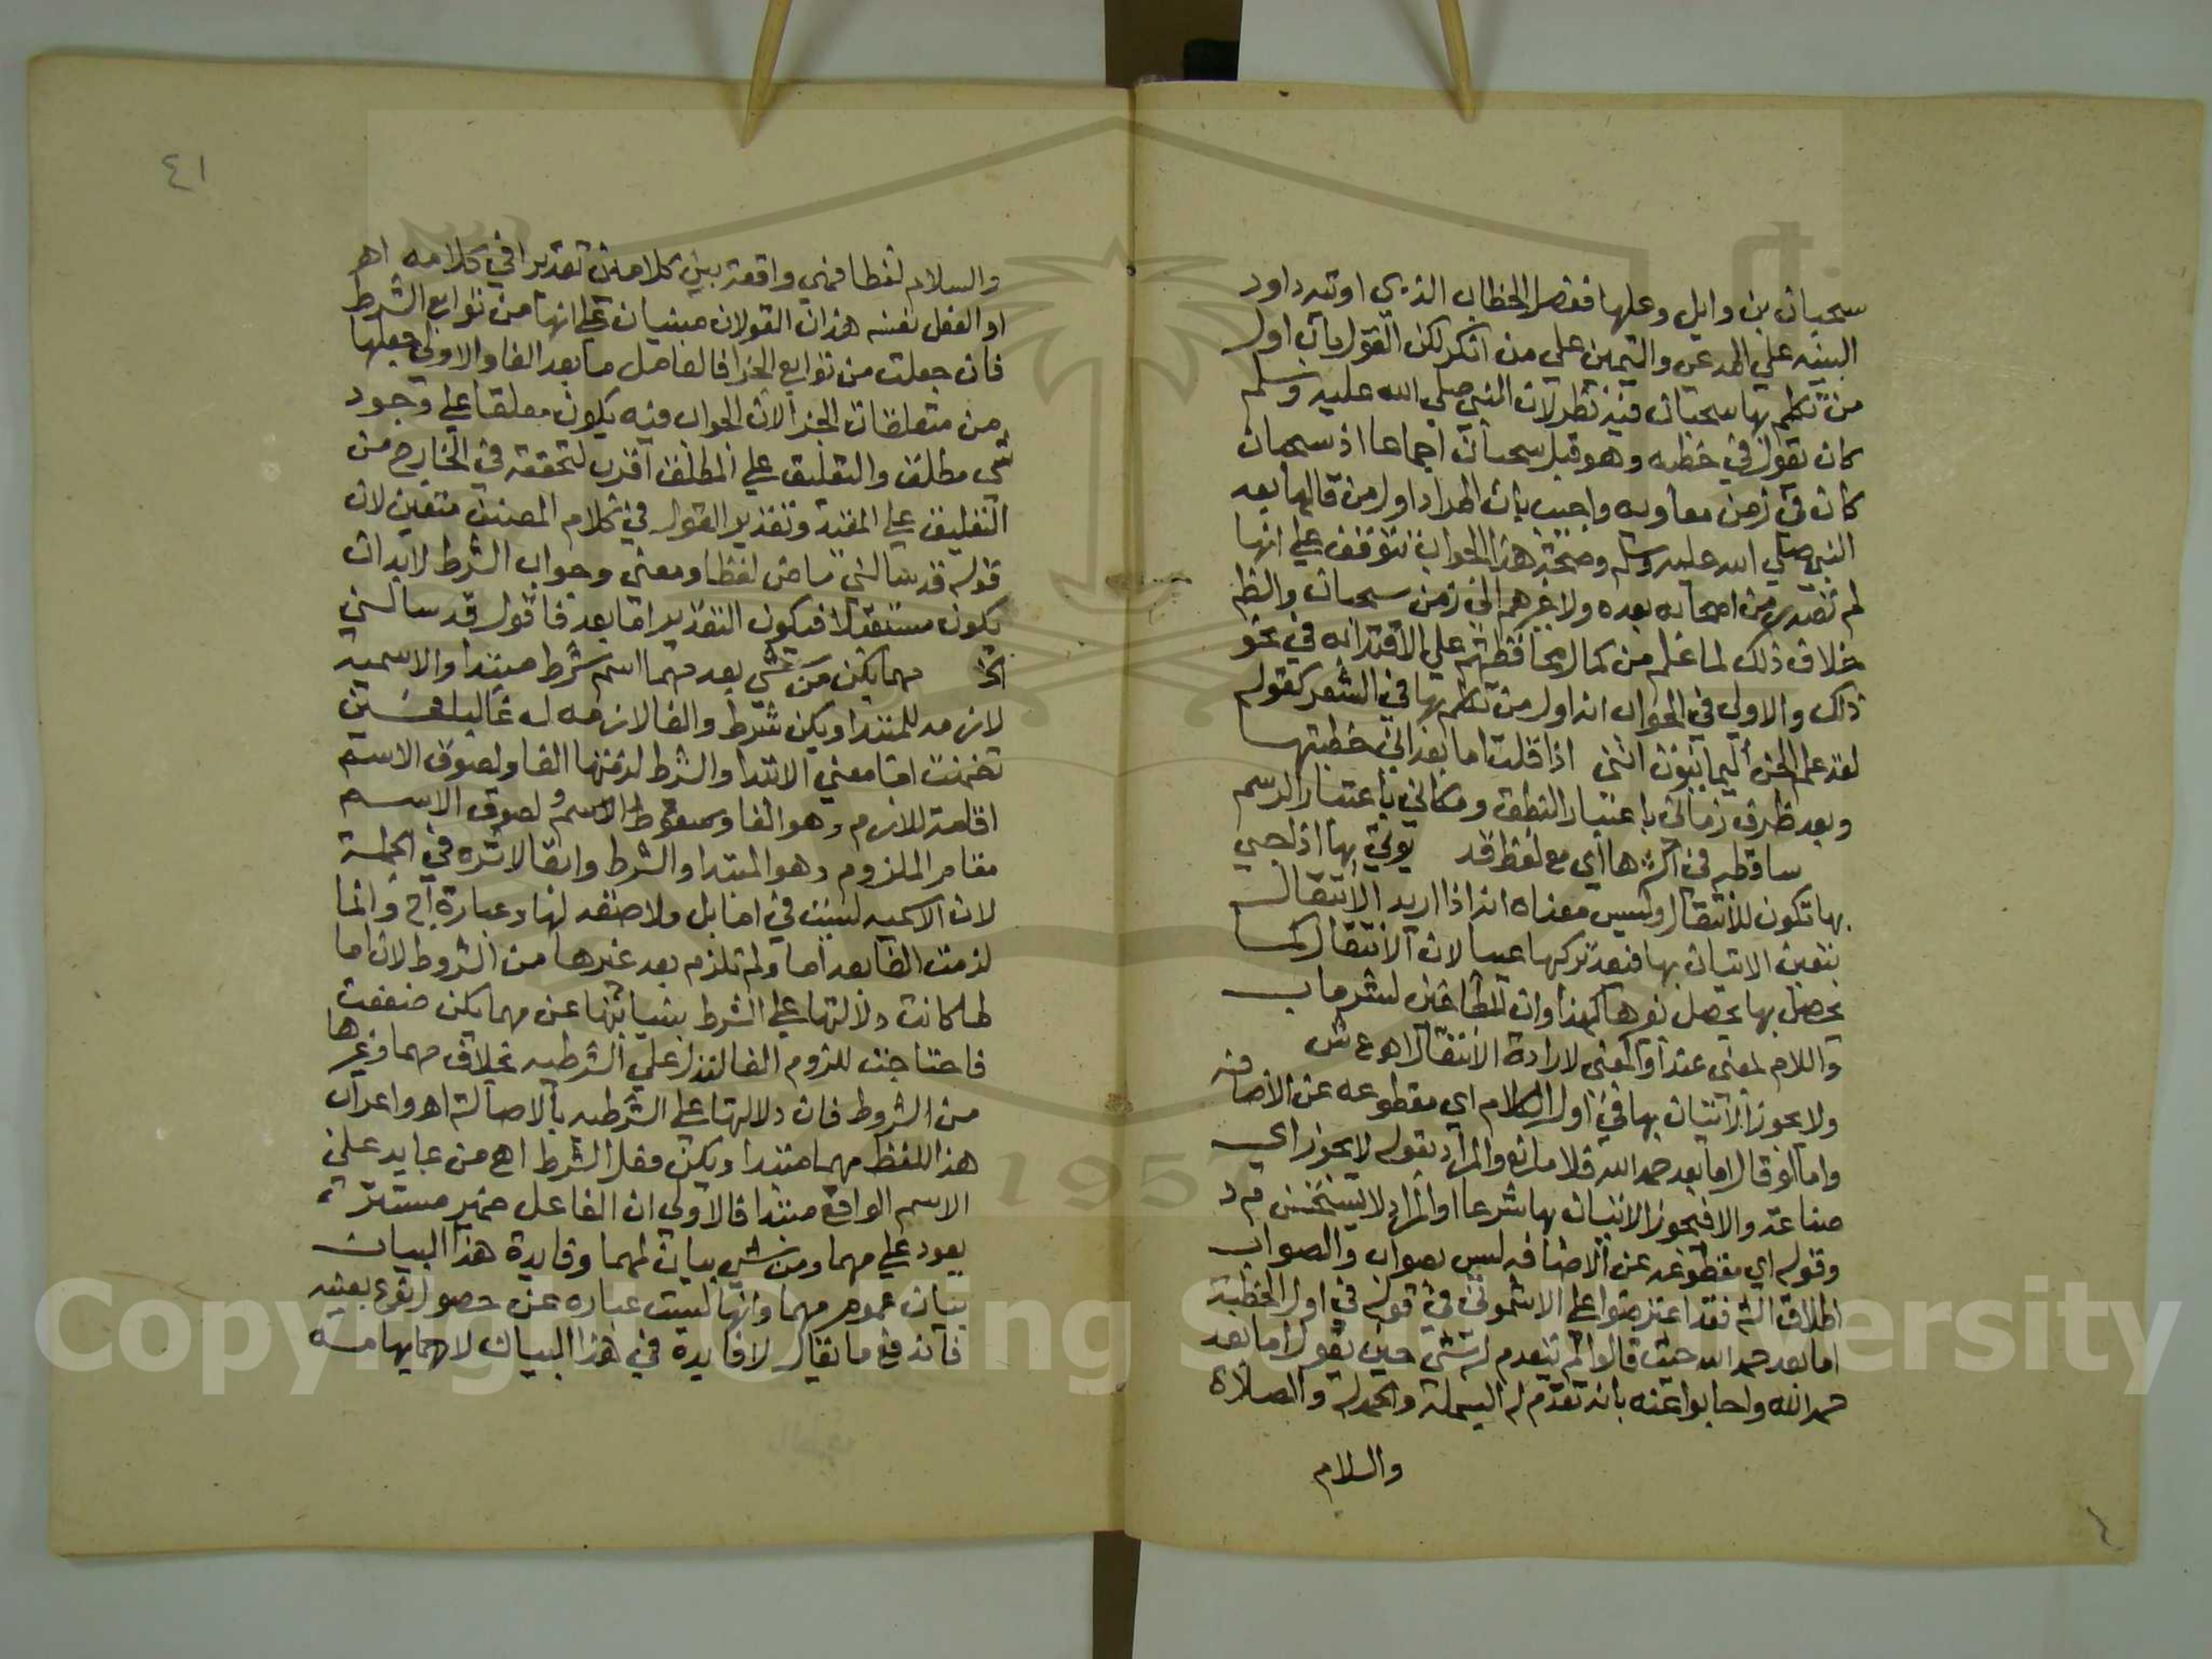 سحبان بن وايل وعليها ففصل الخطاب الذي اوتيه داود
البينه علي المدعي واليمين علي من انكر لكن القول بان اول
من تكلم بها سحبان فيه نظر لان النبي صلي الله عليه وسلم
كان يقولها في خطبه وهو قبل سحبان اجماعا اذ سحبان
كان في زمن معاويه واجيب بان المراد اول من قالها بعد
النبي صلي الله عليه وسلم وصحة هذا الجواب تتوقف علي انها
لم تصدر من اصحابه بعده ولا غيرهم الي زمن سحبان والظم
خلاف ذلك لما علم من كمال محافظتهم علي الاقتدا به في نحو
ذلك والاولي في الجواب انه اول من تكلم بها في الشعر كقوله
لقد علم الحي اليمانيون انني اذا قلت اما بعد اني خطيبها
وبعد ظرف زماني باعتبار النطق ومكاني باعتبار الرسم
ساقطه في اكثرها اي مع لفظ قد يوتي بها اذ لحي
بها تكون للانتقال وليس معناه انه اذا اريد الانتقال
يتعين الاتيان بها فيعد تركها عيبا لان الانتقال كما
يحصل بها يحصل بغيرها كهذا وان للطاغين لشر ماب
واللام لمعني عند او المعني لارادة الانتقال اهـ ع ش
ولا يجوز الاتيان بها في اول الكلام اي مقطوعه عن الاضافه
واما لو قال اما بعد حمد الله فلا مانع والمراد بقوله لا يجوز اي
صناعة والا فيجوز الاتيان بها شرعا او المراد لا يستحسن م د
وقوله اي مقطوعه عن الاضافه ليس بصواب والصواب
اطلاق الش فقد اعترضوا علي الاشموني في قوله في اول الخطبة
اما بعد حمد الله حيث قالوا لم يتقدم له شي حين يقول اما بعد
حمد الله واجابوا عنه بانه تقدم له البسملة والحمدلة والصلاة
والسلام
٤١
والسلام لفظا فهي واقعة بين كلامين تقديرا في كلامه اهـ
او الفعل نفسه هذان القولان مبنيان علي انها من توابع الشرط
فان جعلت من توابع الجزا فالعامل ما بعد الفا والاولي جعلها
من متعلقات الجزا لان الجواب فيه يكون معلقا علي وجود
شي مطلق والتعليق علي المطلق اقرب لتحققه في الخارج من
التعليق علي المقيد وتقدير القول في كلام المصنف متعين لان
قوله قد سالني ماض لفظا ومعني وجواب الشرط لابد ان
يكون مستقبلا فيكون التقدير اما بعد فاقول قد سالني
الخ مهما يكن من شي بعد مهما اسم شرط مبتدا والاسمية
لازمه للمبتدا ويكن شرط والفا لازمه له غالبا فحين
تضمنت اما معني الابتدا والشرط لزمتها الفا ولصوق الاسم
اقامة للازم وهو الفا ولصوق الاسم
مقام الملزوم وهو المبتدا والشرط وابقا لاثره في الجملة
لان الاسميه ليست في اما بل ولا صفه لها وعبارة اج وانما
لزمت الفا بعد اما ولم تلزم بعد غيرها من الشروط لان اما
لما كانت دلالتها علي الشرط بنيابتها عن مهما يكن ضعفت
فاحتاجت للزوم الفا لتدل علي الشرطيه بخلاف مهما وغيرها
من الشروط فان دلالتها علي الشرطيه بالاصالة اهـ واعراب
هذا اللفظ مهما مبتدا ويكن فعل الشرط اهـ من عايد علي
الاسم الواقع مبتدا فالاولي ان الفاعل ضمير مستتر
يعود علي مهما ومن شي بيان لمهما وفايدة هذا البيان
بيان عموم مهما وانها ليست عباره عن حصول نوع بعينه
فاندفع ما يقال لا فايدة في هذا البيان لابهامها منه
Copyright © King Saud University
1957